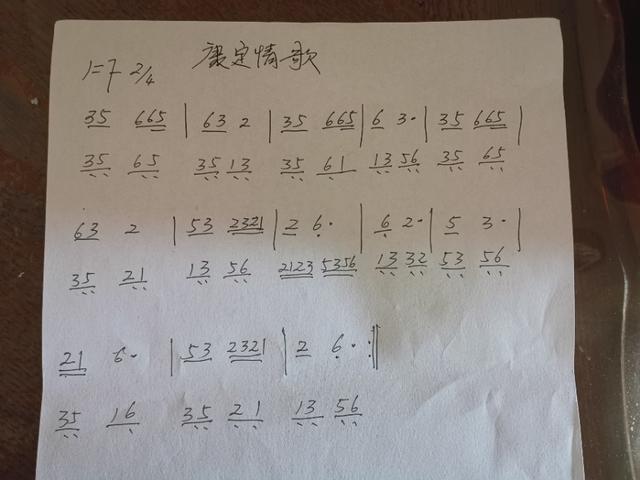 1=F 2/4 康定情歌
35 665 | 63 2 | 35 665 | 6 3· | 35 665 |
35 65 35 13 35 61 13 56 35 65
63 2 | 53 2321 | 2 6· | 6 2· | 5 3· |
35 21 13 56 2123 5356 13 32 53 56
21 6· | 53 2321 | 2 6· :||
35 16 35 21 13 56